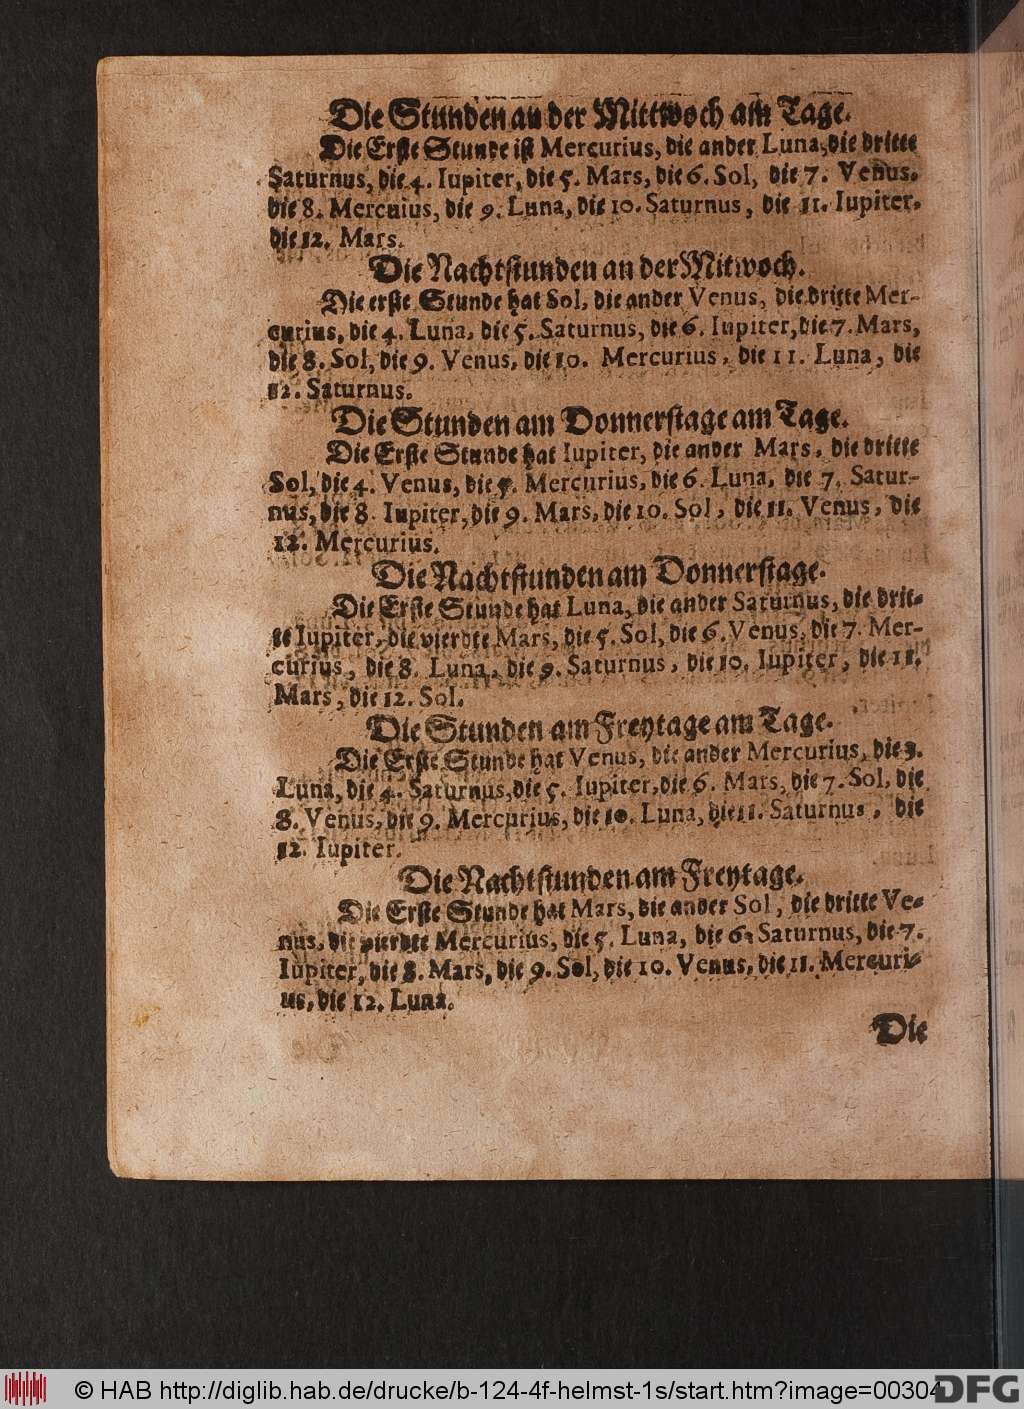 Die Stunden an der Mittwoch am Tage.
Die Erste Stunde ist Mercurius, die ander Luna, die dritte
Saturnus, die 4. Iupiter, die 5. Mars, die 6. Sol, die 7. Venus.
die 8. Mercuius, die 9. Luna, die 10. Saturnus, die 11. Iupiter.
die 12. Mars.
Die Nachtstunden an der Mitwoch.
Die erste Stunde hat Sol, die ander Venus, die dritte Mer-
curius, die 4. Luna, die 5. Saturnus, die 6. Iupiter, die 7. Mars,
die 8. Sol, die 9. Venus, die 10. Mercurius, die 11. Luna, die
12. Saturnus.
Die Stunden am Donnerstage am Tage.
Die Erste Stunde hat Iupiter, die ander Mars, die dritte
Sol, die 4. Venus, die 5. Mercurius, die 6. Luna, die 7. Satur-
nus, die 8. Iupiter, die 9. Mars, die 10. Sol, die 11. Venus, die
12. Mercurius.
Die Nachtstunden am Donnerstage.
Die Erste Stunde hat Luna, die ander Saturnus, die drit-
te Iupiter, die vierdte Mars, die 5. Sol, die 6. Venus, die 7. Mer-
curius, die 8. Luna, die 9. Saturnus, die 10. Iupiter, die 11.
Mars, die 12. Sol.
Die Stunden am Freytage am Tage.
Die Erste Stunde hat Venus, die ander Mercurius, die 3.
Luna, die 4. Saturnus, die 5. Iupiter, die 6. Mars, die 7. Sol, die
8. Venus, die 9. Mercurius, die 10. Luna, die 11. Saturnus, die
12. Iupiter.
Die Nachtstunden am Freytage.
Die Erste Stunde hat Mars, die ander Sol, die dritte Ve-
nus, die vierdte Mercurius, die 5. Luna, die 6. Saturnus, die 7.
Iupiter, die 8. Mars, die 9. Sol, die 10. Venus, die 11. Mercuri-
us, die 12. Luna.
Die
© HAB http://diglib.hab.de/drucke/b-124-4f-helmst-1s/start.htm?image=00304
DFG